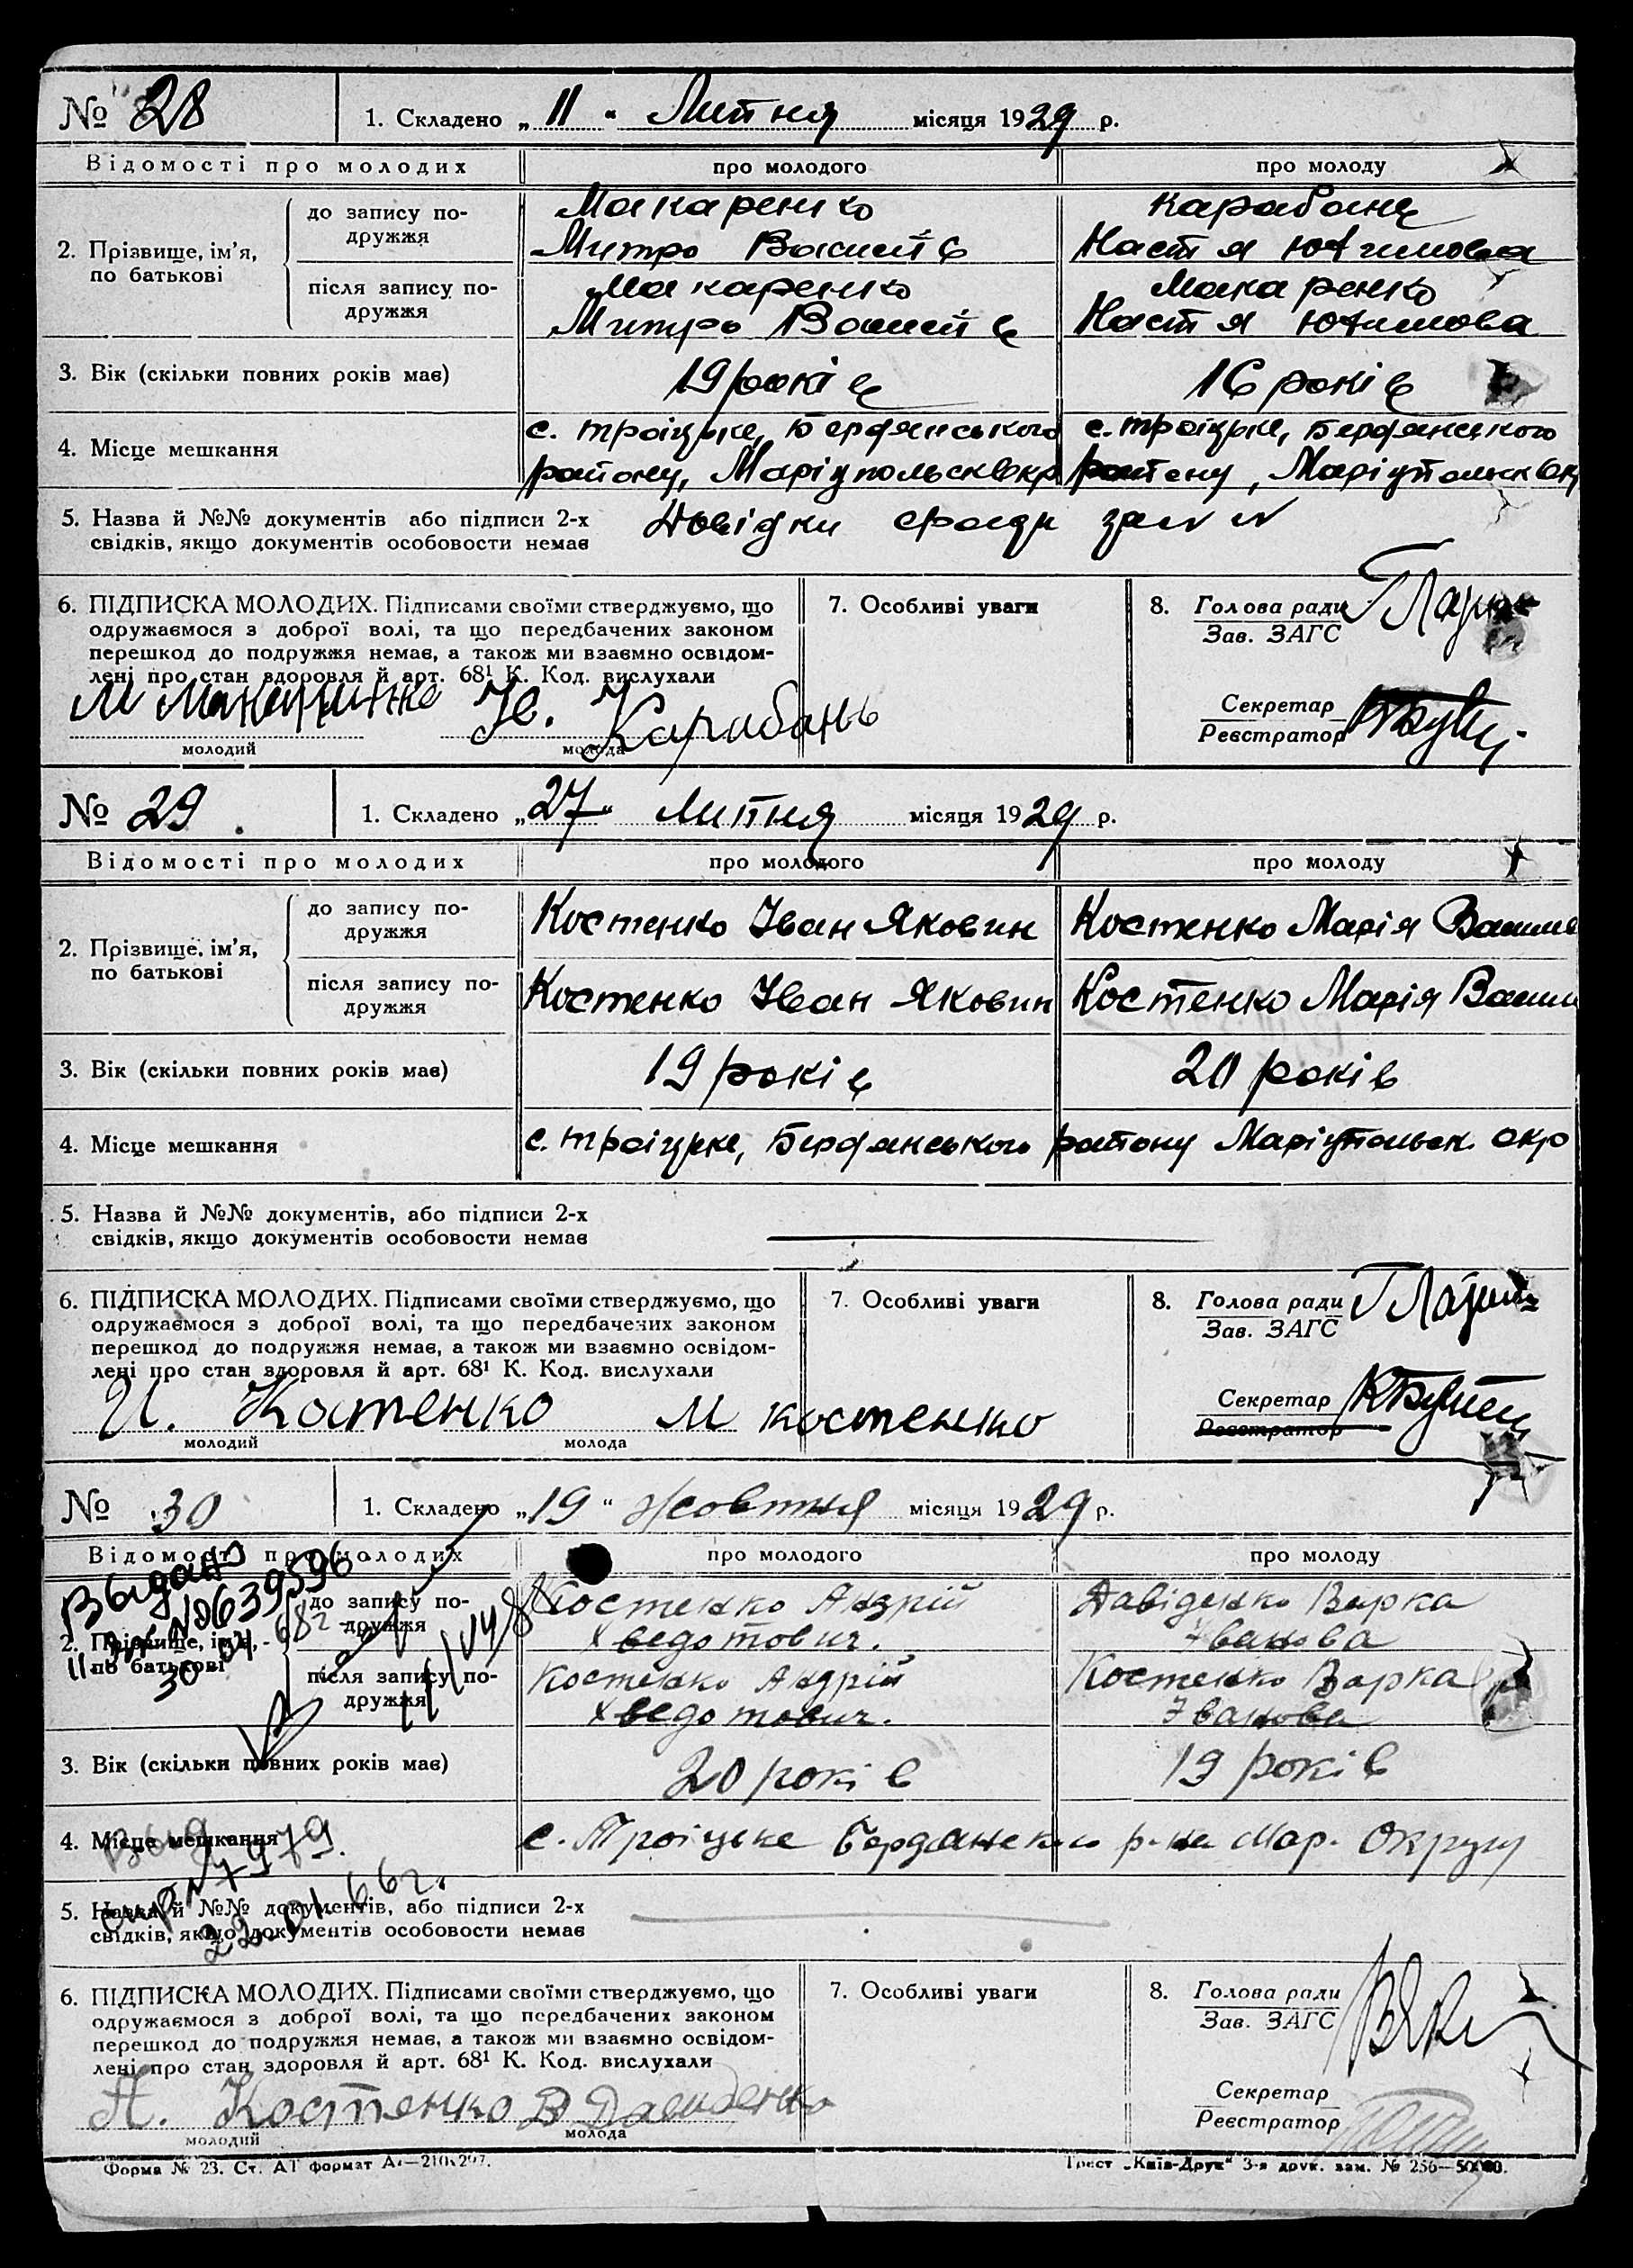 № 28
1. Складено „ 11 “ Липня місяця 1929 р.
Відомості про молодих
про молодого
про молоду
2. Прізвище, ім’я, по батькові
до запису подружжя
Макаренко
Митро Василів
Карабань
Настя Юхимова
після запису по-
дружжя
Макаренко
Митро Василів
Макаренко
Настя Юхимова
3. Вік (скільки повних років має)
19 років
16 років
4. Місце мешкання
с. Троіцьке, Бердянського
району, Маріупольск Окр
с. Троіцьке, Бердянського
району, Маріупольськ Окр
5. Назва й №№ документів або підписи 2-х
свідків, якщо документів особовости немає
Довідки
6. ПІДПИСКА МОЛОДИХ. Підписами своїми стверджуємо, що
одружаємося з доброї волі, та що передбачених законом
перешкод до подружжя немає, а також ми взаємно освідом-
лені про стан здоровля й арт. 68¹ К. Код. вислухали
М Макаринко Н. Карибань
молодий
молода
7. Особливі уваги
8. Голова ради
Зав. ЗАГС
Секретар
Реєстратор
№ 29
1. Складено „ 27 “ Липня місяця 1929 р.
Відомості про молодих
про молодого
про молоду
2. Прізвище, ім’я,
по батькові
до запису по-
дружжя
Костенко Іван Яковин
Костенко Марія Васил
після запису по-
дружжя
Костенко Іван Яковин
Костенко Марія Васил
3. Вік (скільки повних років має)
19 років
20 років
4. Місце мешкання
с. Троіцьке, Бердянського району Маріупольськ. окр
5. Назва й №№ документів, або підписи 2-х
свідків, якщо документів особовости немає
6. ПІДПИСКА МОЛОДИХ. Підписами своїми стверджуємо, що
одружаємося з доброї волі, та що передбачених законом
перешкод до подружжя немає, а також ми взаємно освідом-
лені про стан здоровля й арт. 68¹ К. Код. вислухали
И. Костенко М костенко
молодий
молода
7. Особливі уваги
8. Голова ради
Зав. ЗАГС
Секретар
Реєстратор
№ 30
1. Складено „ 19 “ жовтня місяця 1929 р.
Відомості про молодих
про молодого
про молоду
Выдано
№639596
2. Прізвище, ім’я,
по батькові
до запису по-
дружжя
Костенко Андрій
Хведотович.
Давіденко Варка
Іванова
після запису по-
дружжя
Костенко Андрій
Хведотович.
Костенко Варка
Іванова
3. Вік (скільки повних років має)
20 років
19 років
4. Місце мешкання
с. Троіцьке Бердянського р-на Мар. Округи
Выд
7979.
22.01.66г.
5. Назва й №№ документів, або підписи 2-х
свідків, якщо документів особовости немає
6. ПІДПИСКА МОЛОДИХ. Підписами своїми стверджуємо, що
одружаємося з доброї волі, та що передбачених законом
перешкод до подружжя немає, а також ми взаємно освідом-
лені про стан здоровля й арт. 68¹ К. Код. вислухали
А. Костенко В Давиденко
молодий
молода
7. Особливі уваги
8. Голова ради
Зав. ЗАГС
Секретар
Реєстратор
Форма № 23. Ст. АІ формат А₄—210x297.
Трест „Київ-Друк“ 3-я друк. зам. № 256—50000.